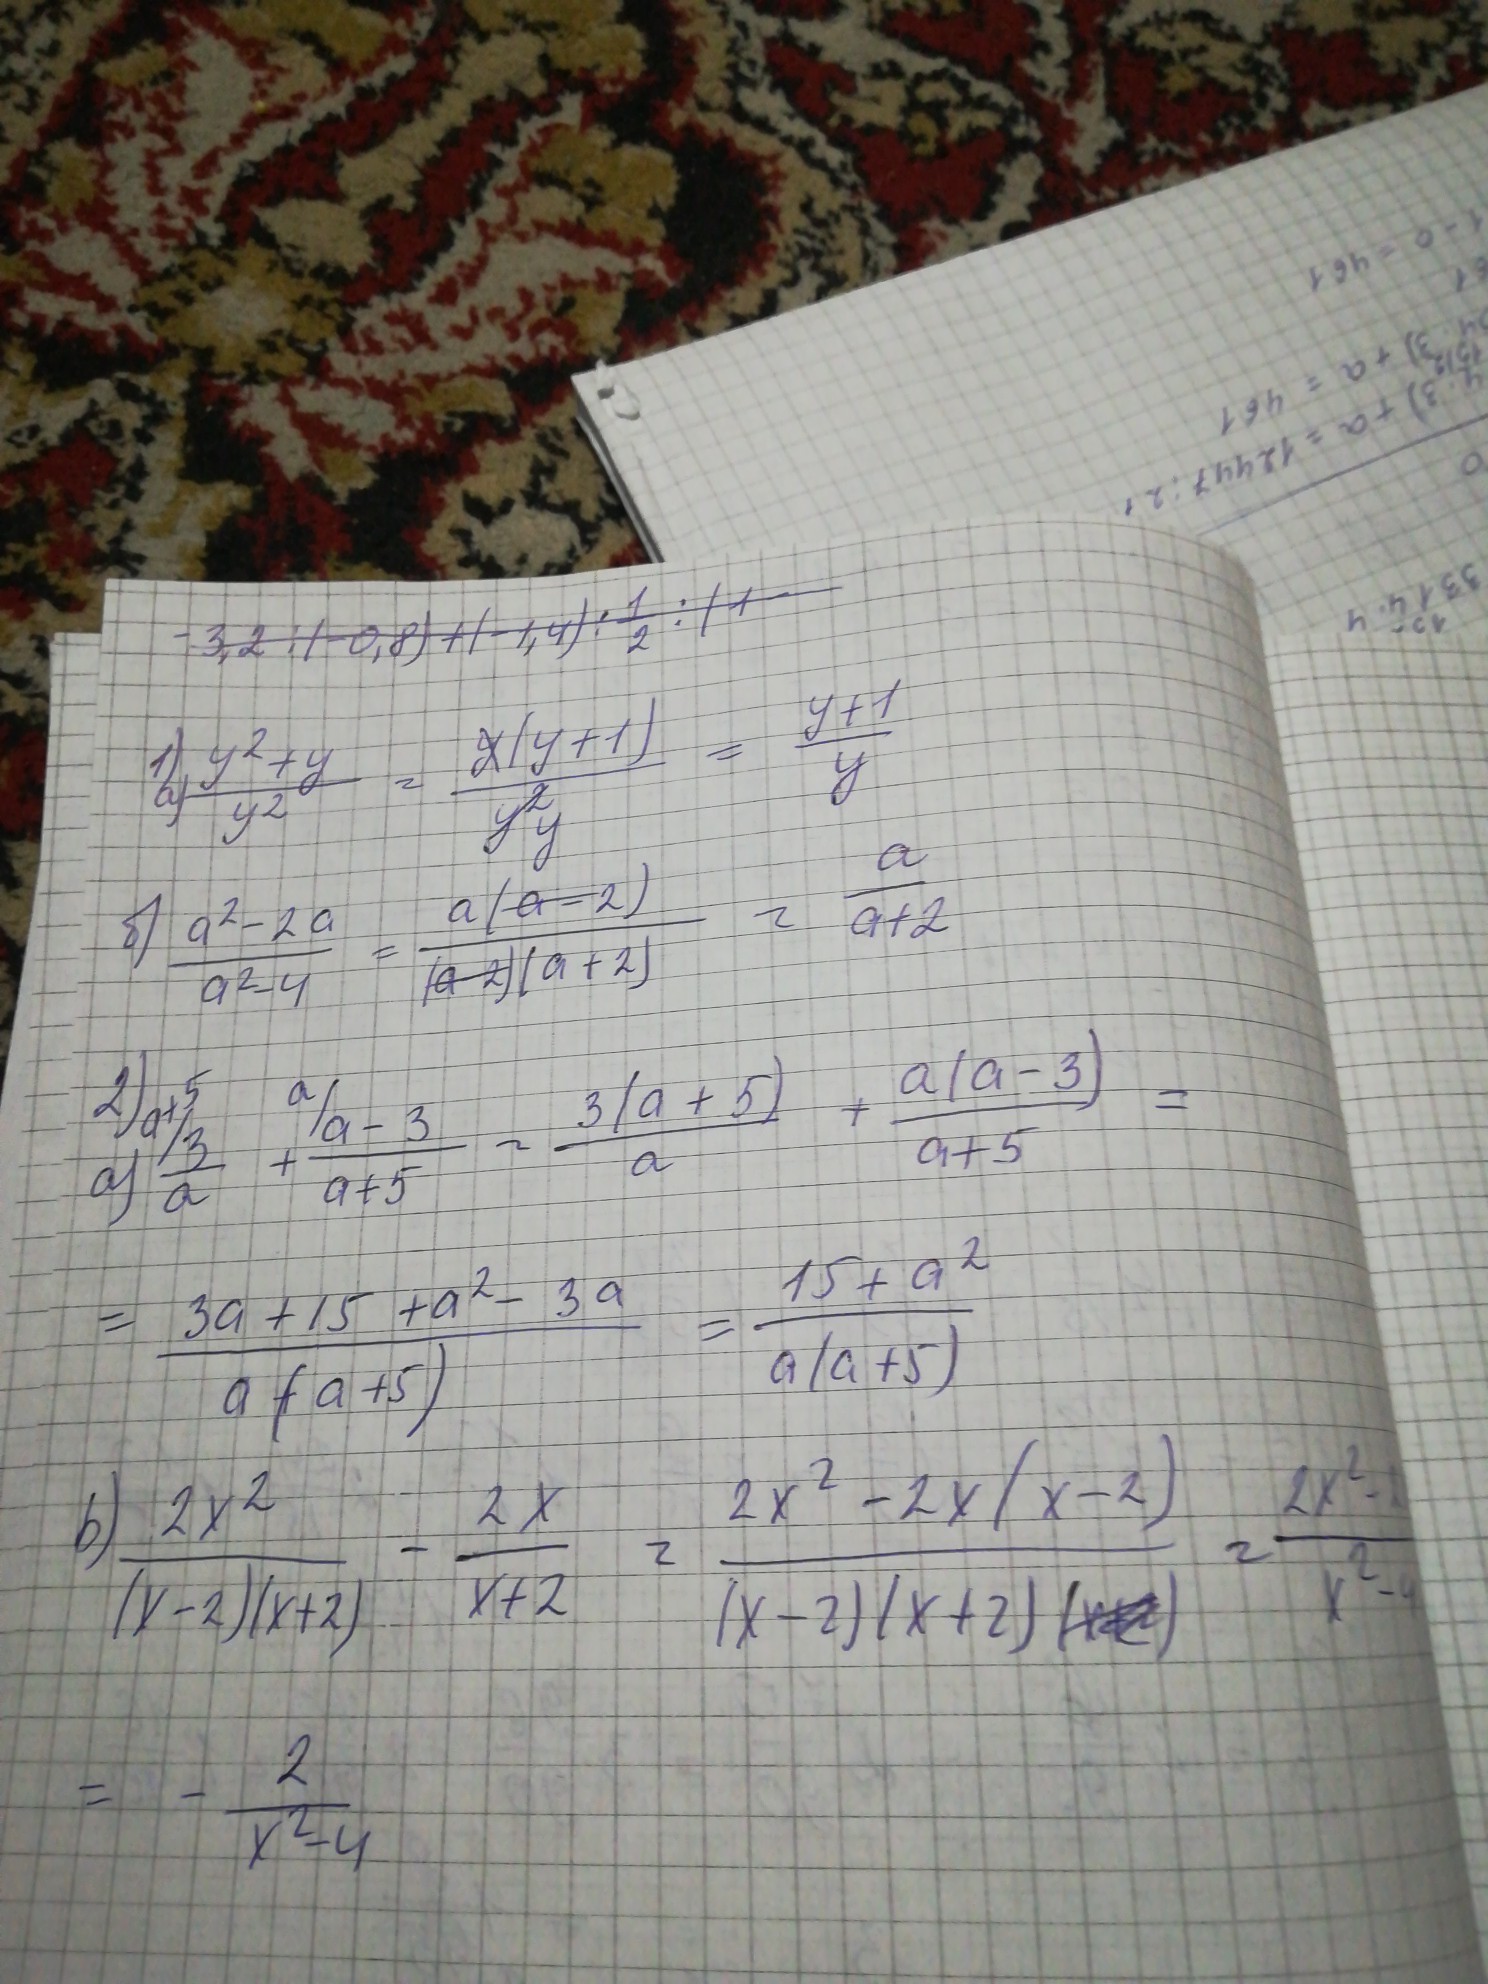 -3,2:(-0,8)+(-1,4):1/2:(1-
1)
а) (y²+y)/y² = y(y+1)/y² y = (y+1)/y
б) (a²-2a)/(a²-4) = a(a-2)/(a-2)(a+2) = a/(a+2)
2)
а) a+5/ 3/a + a/ (a-3)/(a+5) = 3(a+5)/a + a(a-3)/(a+5) =
= (3a+15+a²-3a)/a(a+5) = (15+a²)/a(a+5)
b) 2x²/(x-2)(x+2) - 2x/(x+2) = (2x²-2x(x-2))/(x-2)(x+2) = 2x²-/x²-4
= - 2/(x²-4)
1-a=461
3)+a=461
4.3)+a=12447:21
3314.4